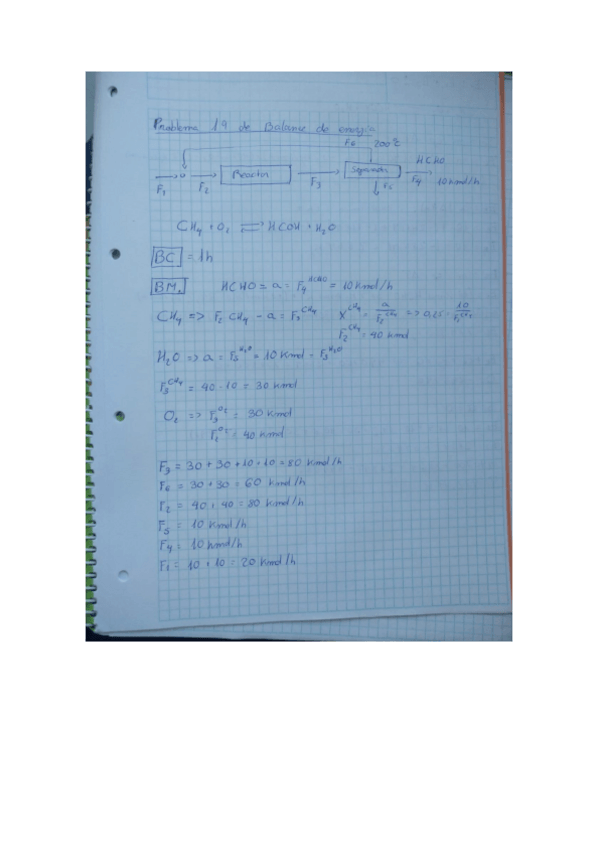 Problema 19 de Balance de energía
F6 200ºC
Reactor
Separador
HCHO
F1
F2
F3
F5
F4 10 kmol/h
CH4 + O2 ⇌ HCOH + H2O
BC = 1h
BM. HCHO = a = F4^HCHO = 10 Kmol/h
CH4 => F2 CH4 - a = F3^CH4 X^CH4 = a/F2^CH4 => 0,25 = 10/F2^CH4
F2^CH4 = 40 kmol
H2O => a = F5^H2O = 10 Kmol = F3^H2O
F3^CH4 = 40 - 10 = 30 kmol
O2 => F3^O2 = 30 Kmol
F2^O2 = 40 Kmol
F3 = 30 + 30 + 10 + 10 = 80 kmol/h
F6 = 30 + 30 = 60 Kmol/h
F2 = 40 + 40 = 80 Kmol/h
F5 = 10 Kmol/h
F4 = 10 kmol/h
F1 = 10 + 10 = 20 Kmol/h